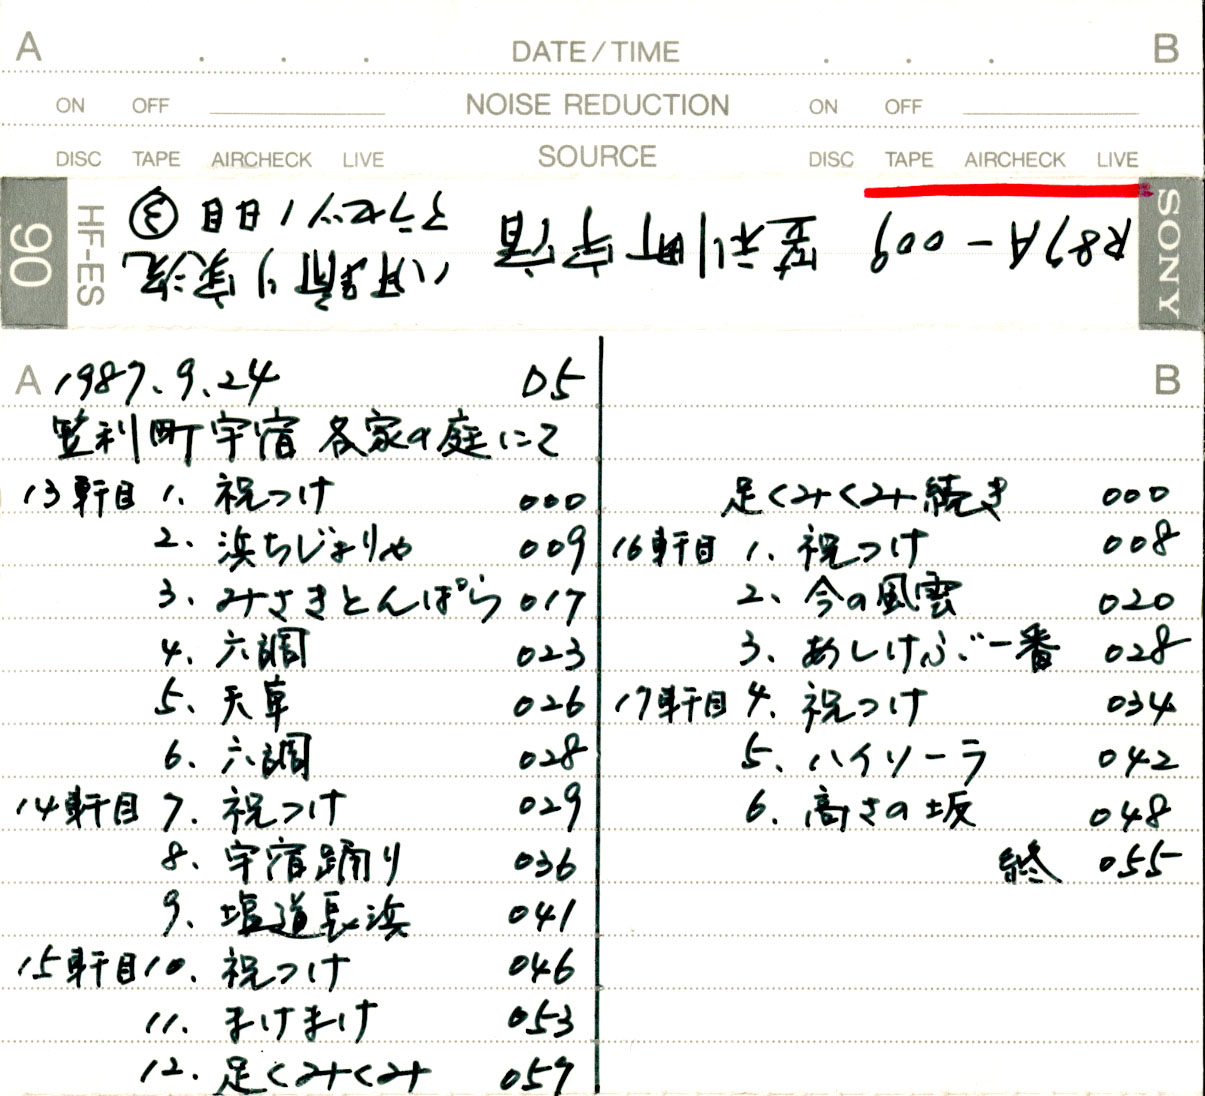 A . . . DATE/TIME . . . B
ON OFF NOISE REDUCTION ON OFF
DISC TAPE AIRCHECK LIVE SOURCE DISC TAPE AIRCHECK LIVE
SONY
R87A-009 笠利町宇宿 八月踊り実況
アラセツ1日目③
HF-ES
90
A 1987.9.24 05
笠利町宇宿 各家の庭にて
13軒目 1. 祝つけ 000
2. 浜ちじょりゃ 009
3. みさきとんばら 017
4. 六調 023
5. 天草 026
6. 六調 028
14軒目 7. 祝つけ 029
8. 宇宿踊り 036
9. 塩道長浜 041
15軒目 10. 祝つけ 046
11. まけまけ 053
12. 足くみくみ 057
B
足くみくみ続き 000
16軒目 1. 祝つけ 008
2. 今の風雲 020
3. あしけぶ一番 028
17軒目 4. 祝つけ 034
5. ハイソーラ 042
6. 高さの坂 048
終 055